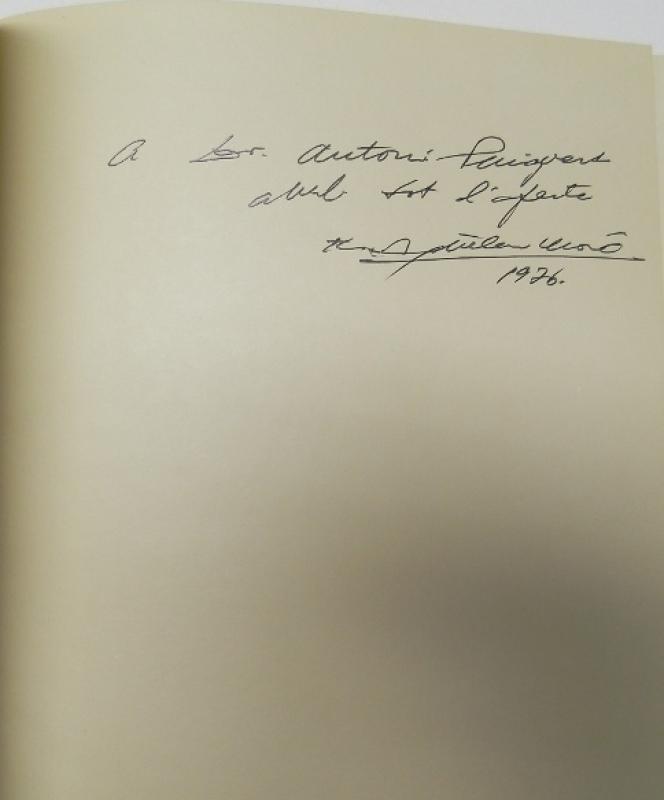 A Dr. Antoni Puigvert
amb tot l'afecte
1976.